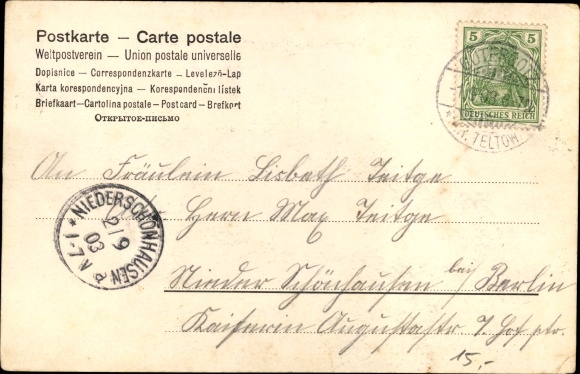 Postkarte — Carte postale
Weltpostverein — Union postale universelle
Dopisnice — Correspondenzkarte — Levelező-Lap
Karta korespondencyjna — Korespondenční lístek
Briefkaart — Cartolina postale — Postcard — Brefkort
Открытое-письмо
5 5
DEUTSCHES REICH
TELTOW
An Fräulein Lisbeth Teitge
Herrn Max Teitge
* NIEDERSCHÖNHAUSEN
2/9
03
7-8 V
Nieder Schönhausen bei Berlin
Kaiserin Augustastr 7 Hof ptr.
15,-